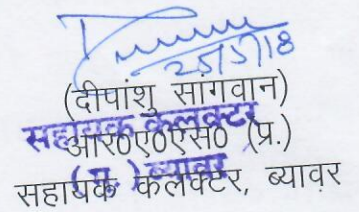 25/5/18
(दीपांशु सांगवान)
सहायक कलक्टर
आर०ए०एस० (प्र.)
(प्र.) ब्यावर
सहायक कलक्टर, ब्यावर